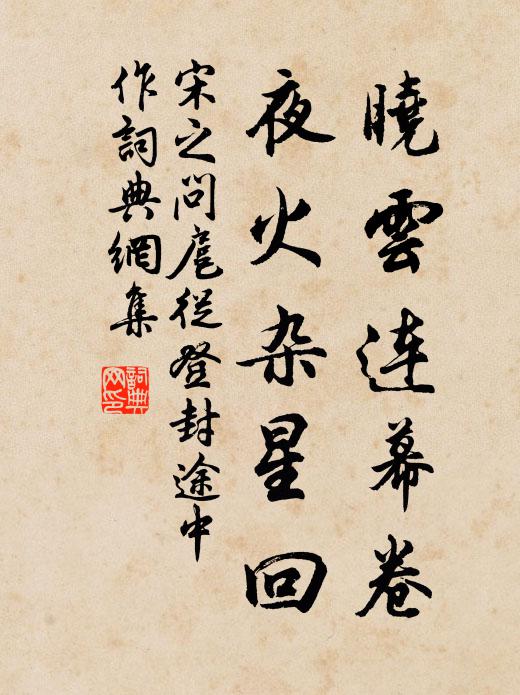 曉雲连幕卷
夜火杂星回
宋之问扈從登封途中
作詞典網集
詞典
网印